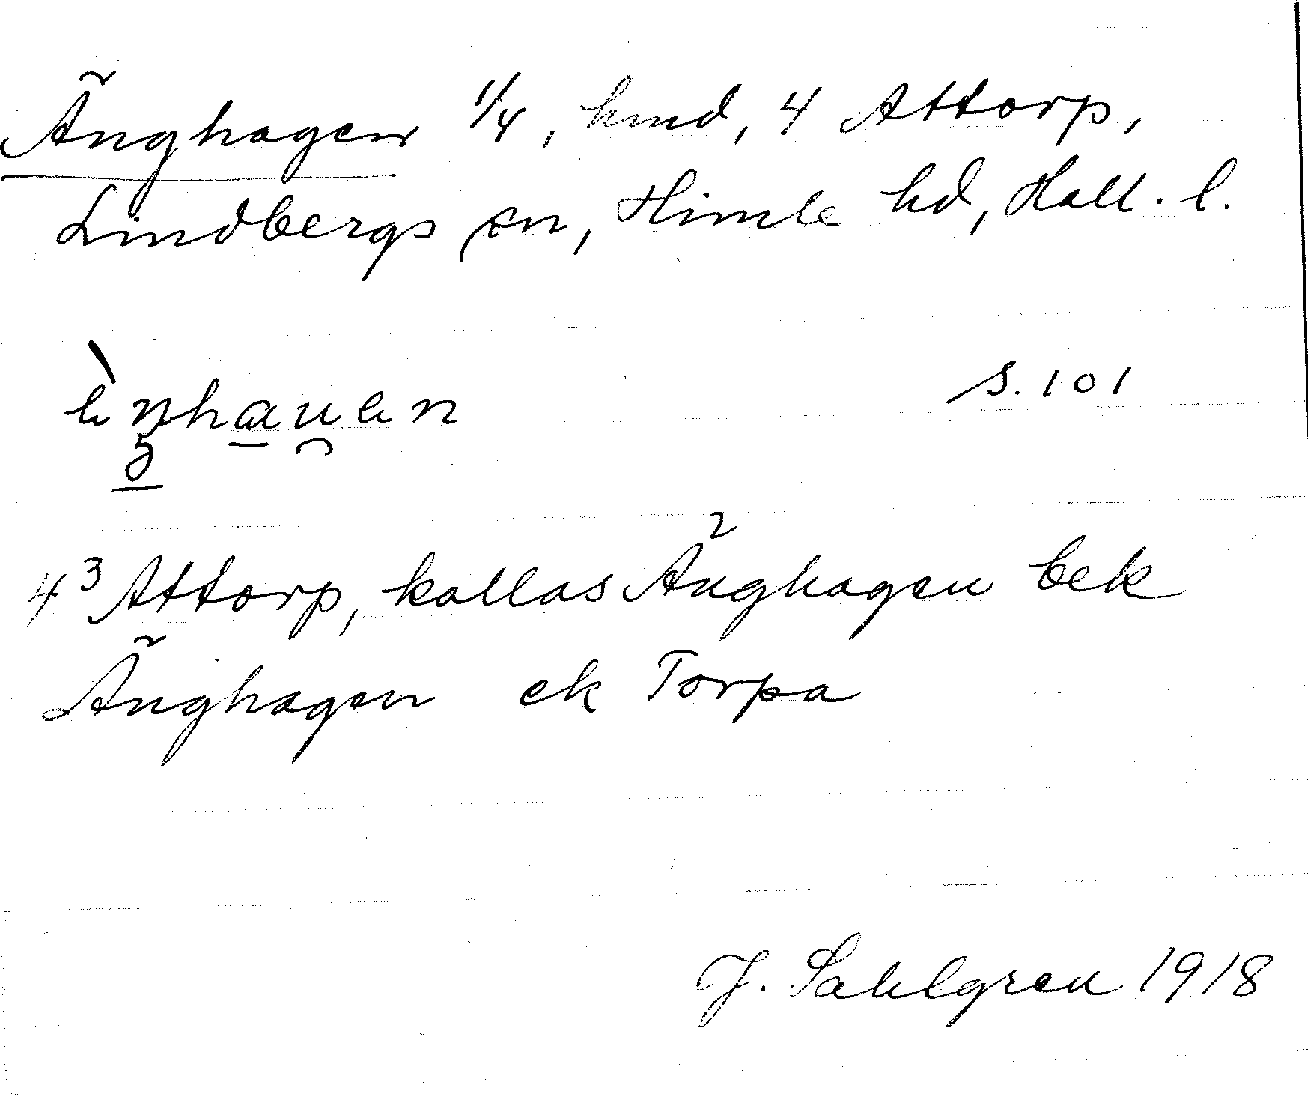 Änghagen 1/4, hmd, 4 Attorp,
Lindbergs sn, Himle hd, Hall. l.
s. 101
4³ Attorp, kallas Änghagen² bek
Änghagen ek Torpa
J. Sahlgren 1918